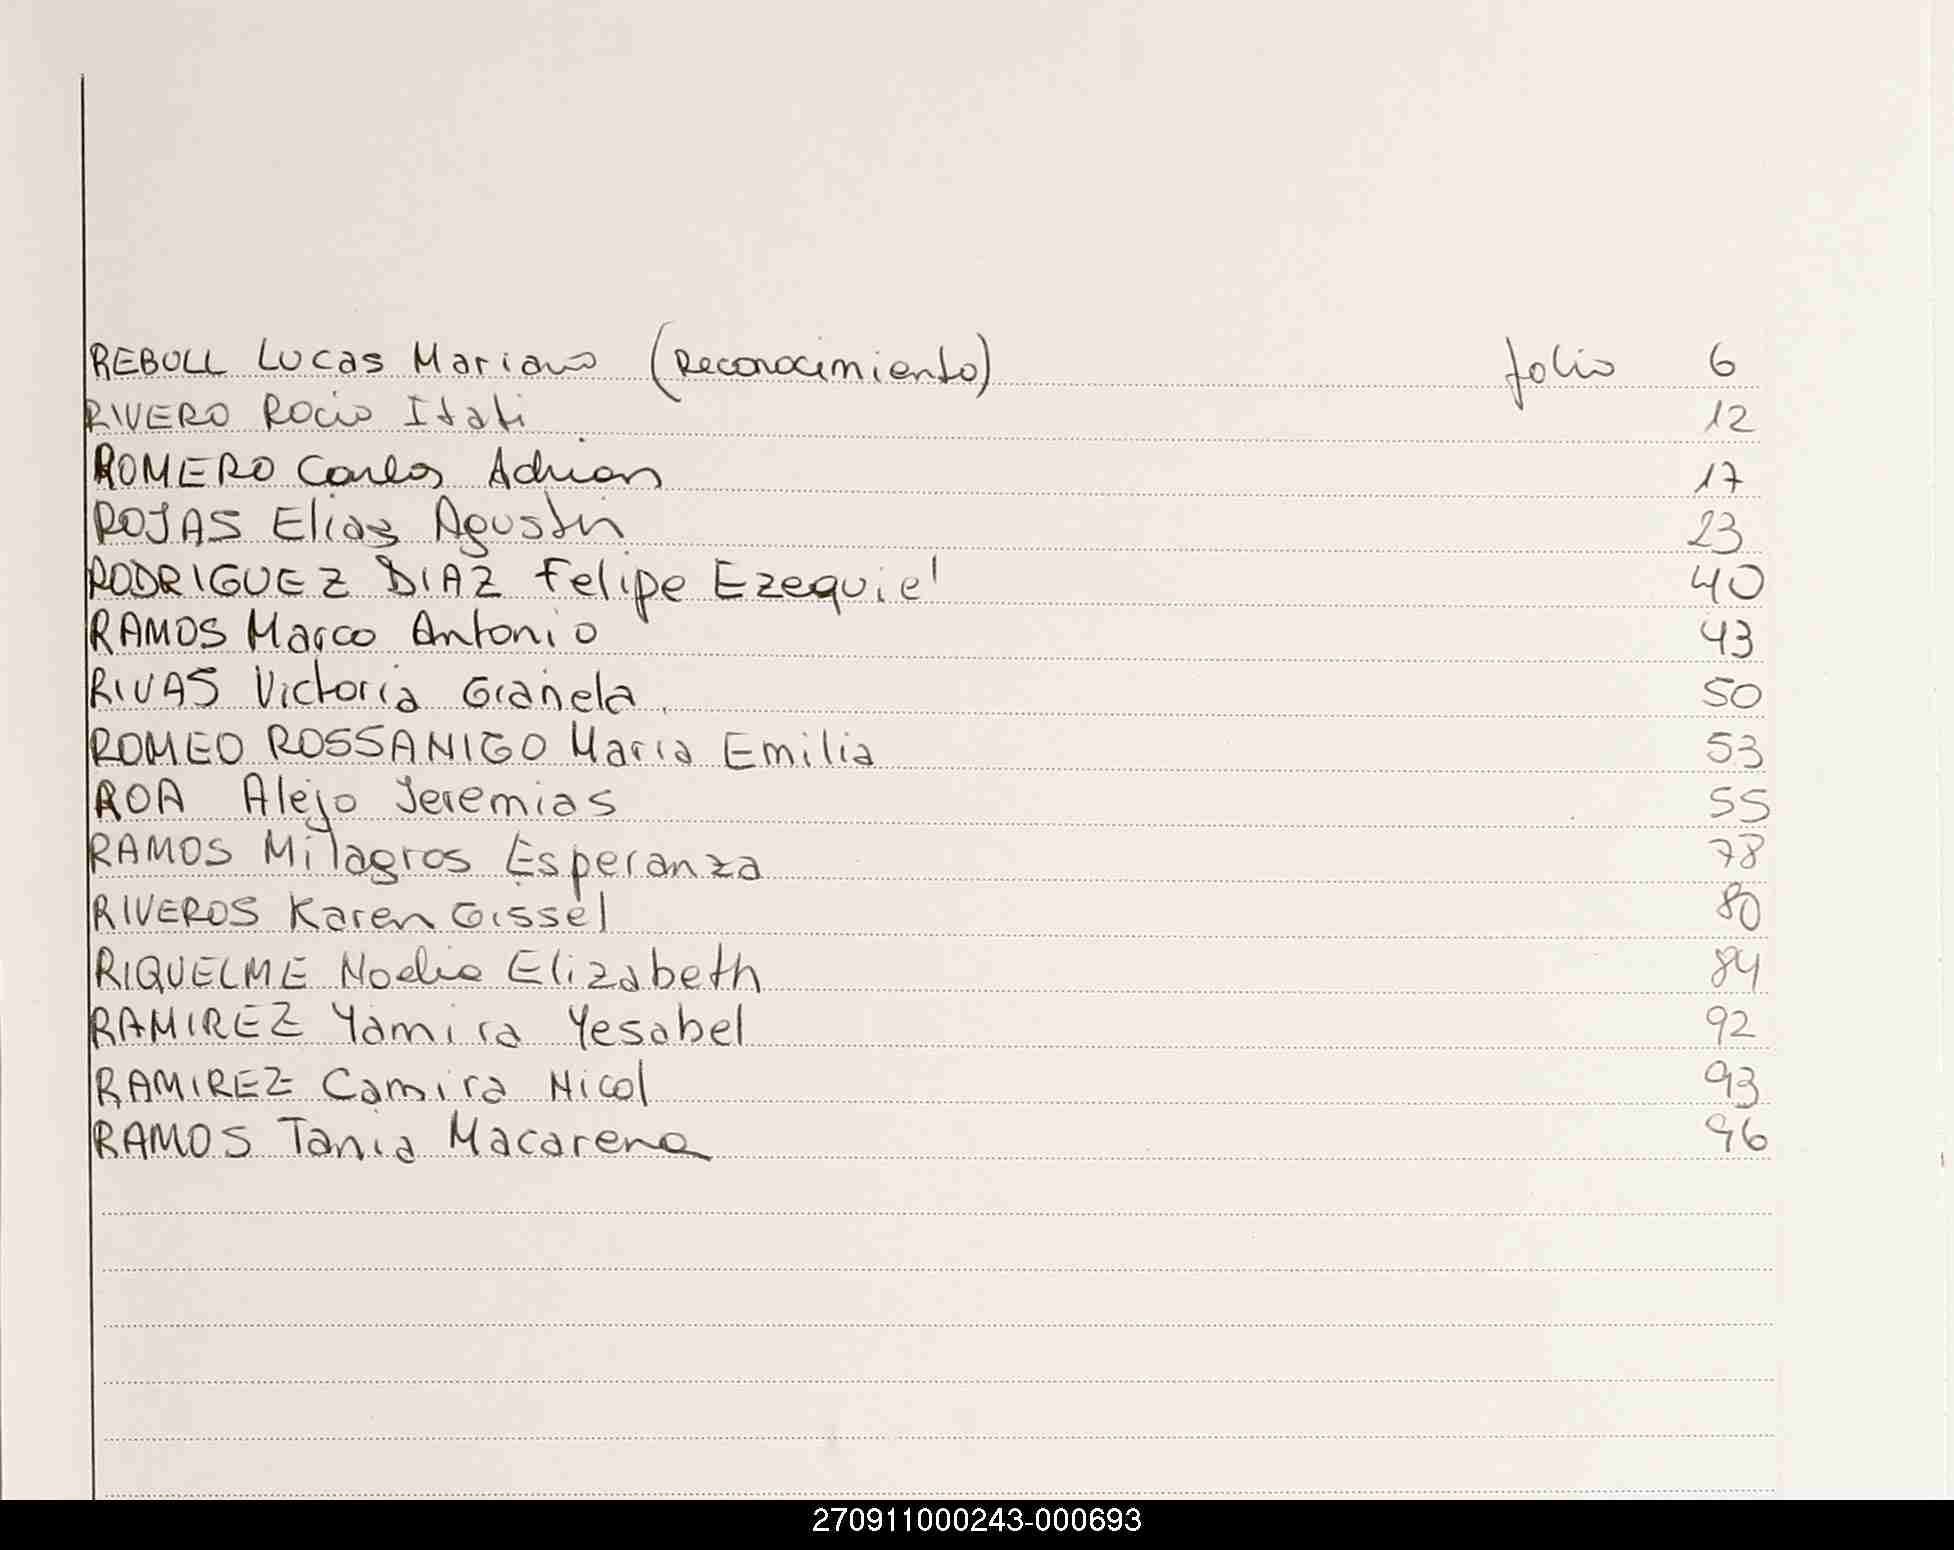 REBOLL Lucas Mariano (Reconocimiento) folio 6
RIVERO Rocio Itati 12
ROMERO Carlos Adrian 17
ROJAS Elias Agustin 23
RODRIGUEZ DIAZ Felipe Ezequiel 40
RAMOS Marco Antonio 43
RIVAS Victoria Gianela 50
ROMEO ROSSANIGO Maria Emilia 53
ROA Alejo Jeremias 55
RAMOS Milagros Esperanza 78
RIVEROS Karen Gissel 80
RIQUELME Noelia Elizabeth 84
RAMIREZ Yamira Yesabel 92
RAMIREZ Camira Nicol 93
RAMOS Tania Macarena 96
270911000243-000693